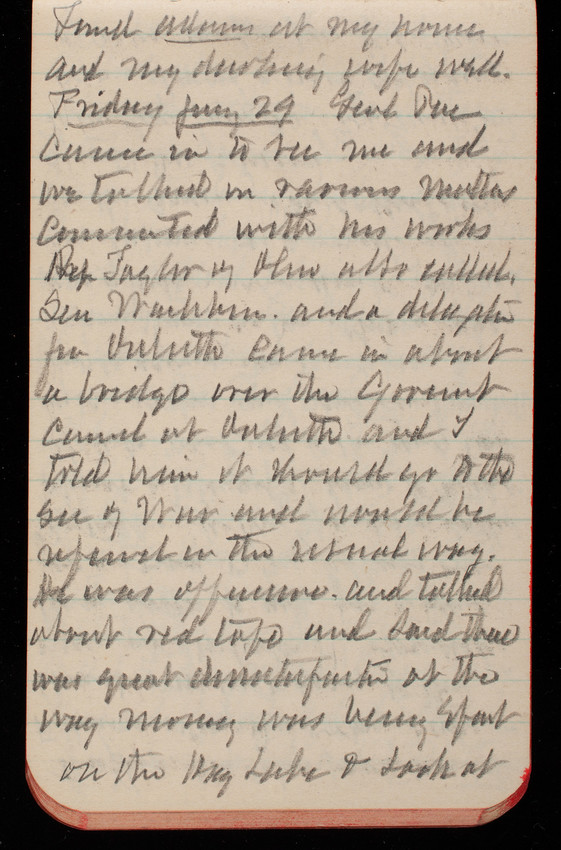 Found Adams at my home
and my darling wife well.
Friday Jany 29 Genl Poe
Came in to see me and
we talked on various matters
Connected with his works
Rep Taylor of Ohio also called.
Sen Washburn. and a delegation
from Duluth came in about
a bridge over the Goverment
Canal at Duluth and I
told him it should go to the
Sec of War and would be
refered in the usual way.
He was offensive. and talked
about red tape and said there
was great dissatisfaction at the
way money was being spent
on the Hay Lake & Look at